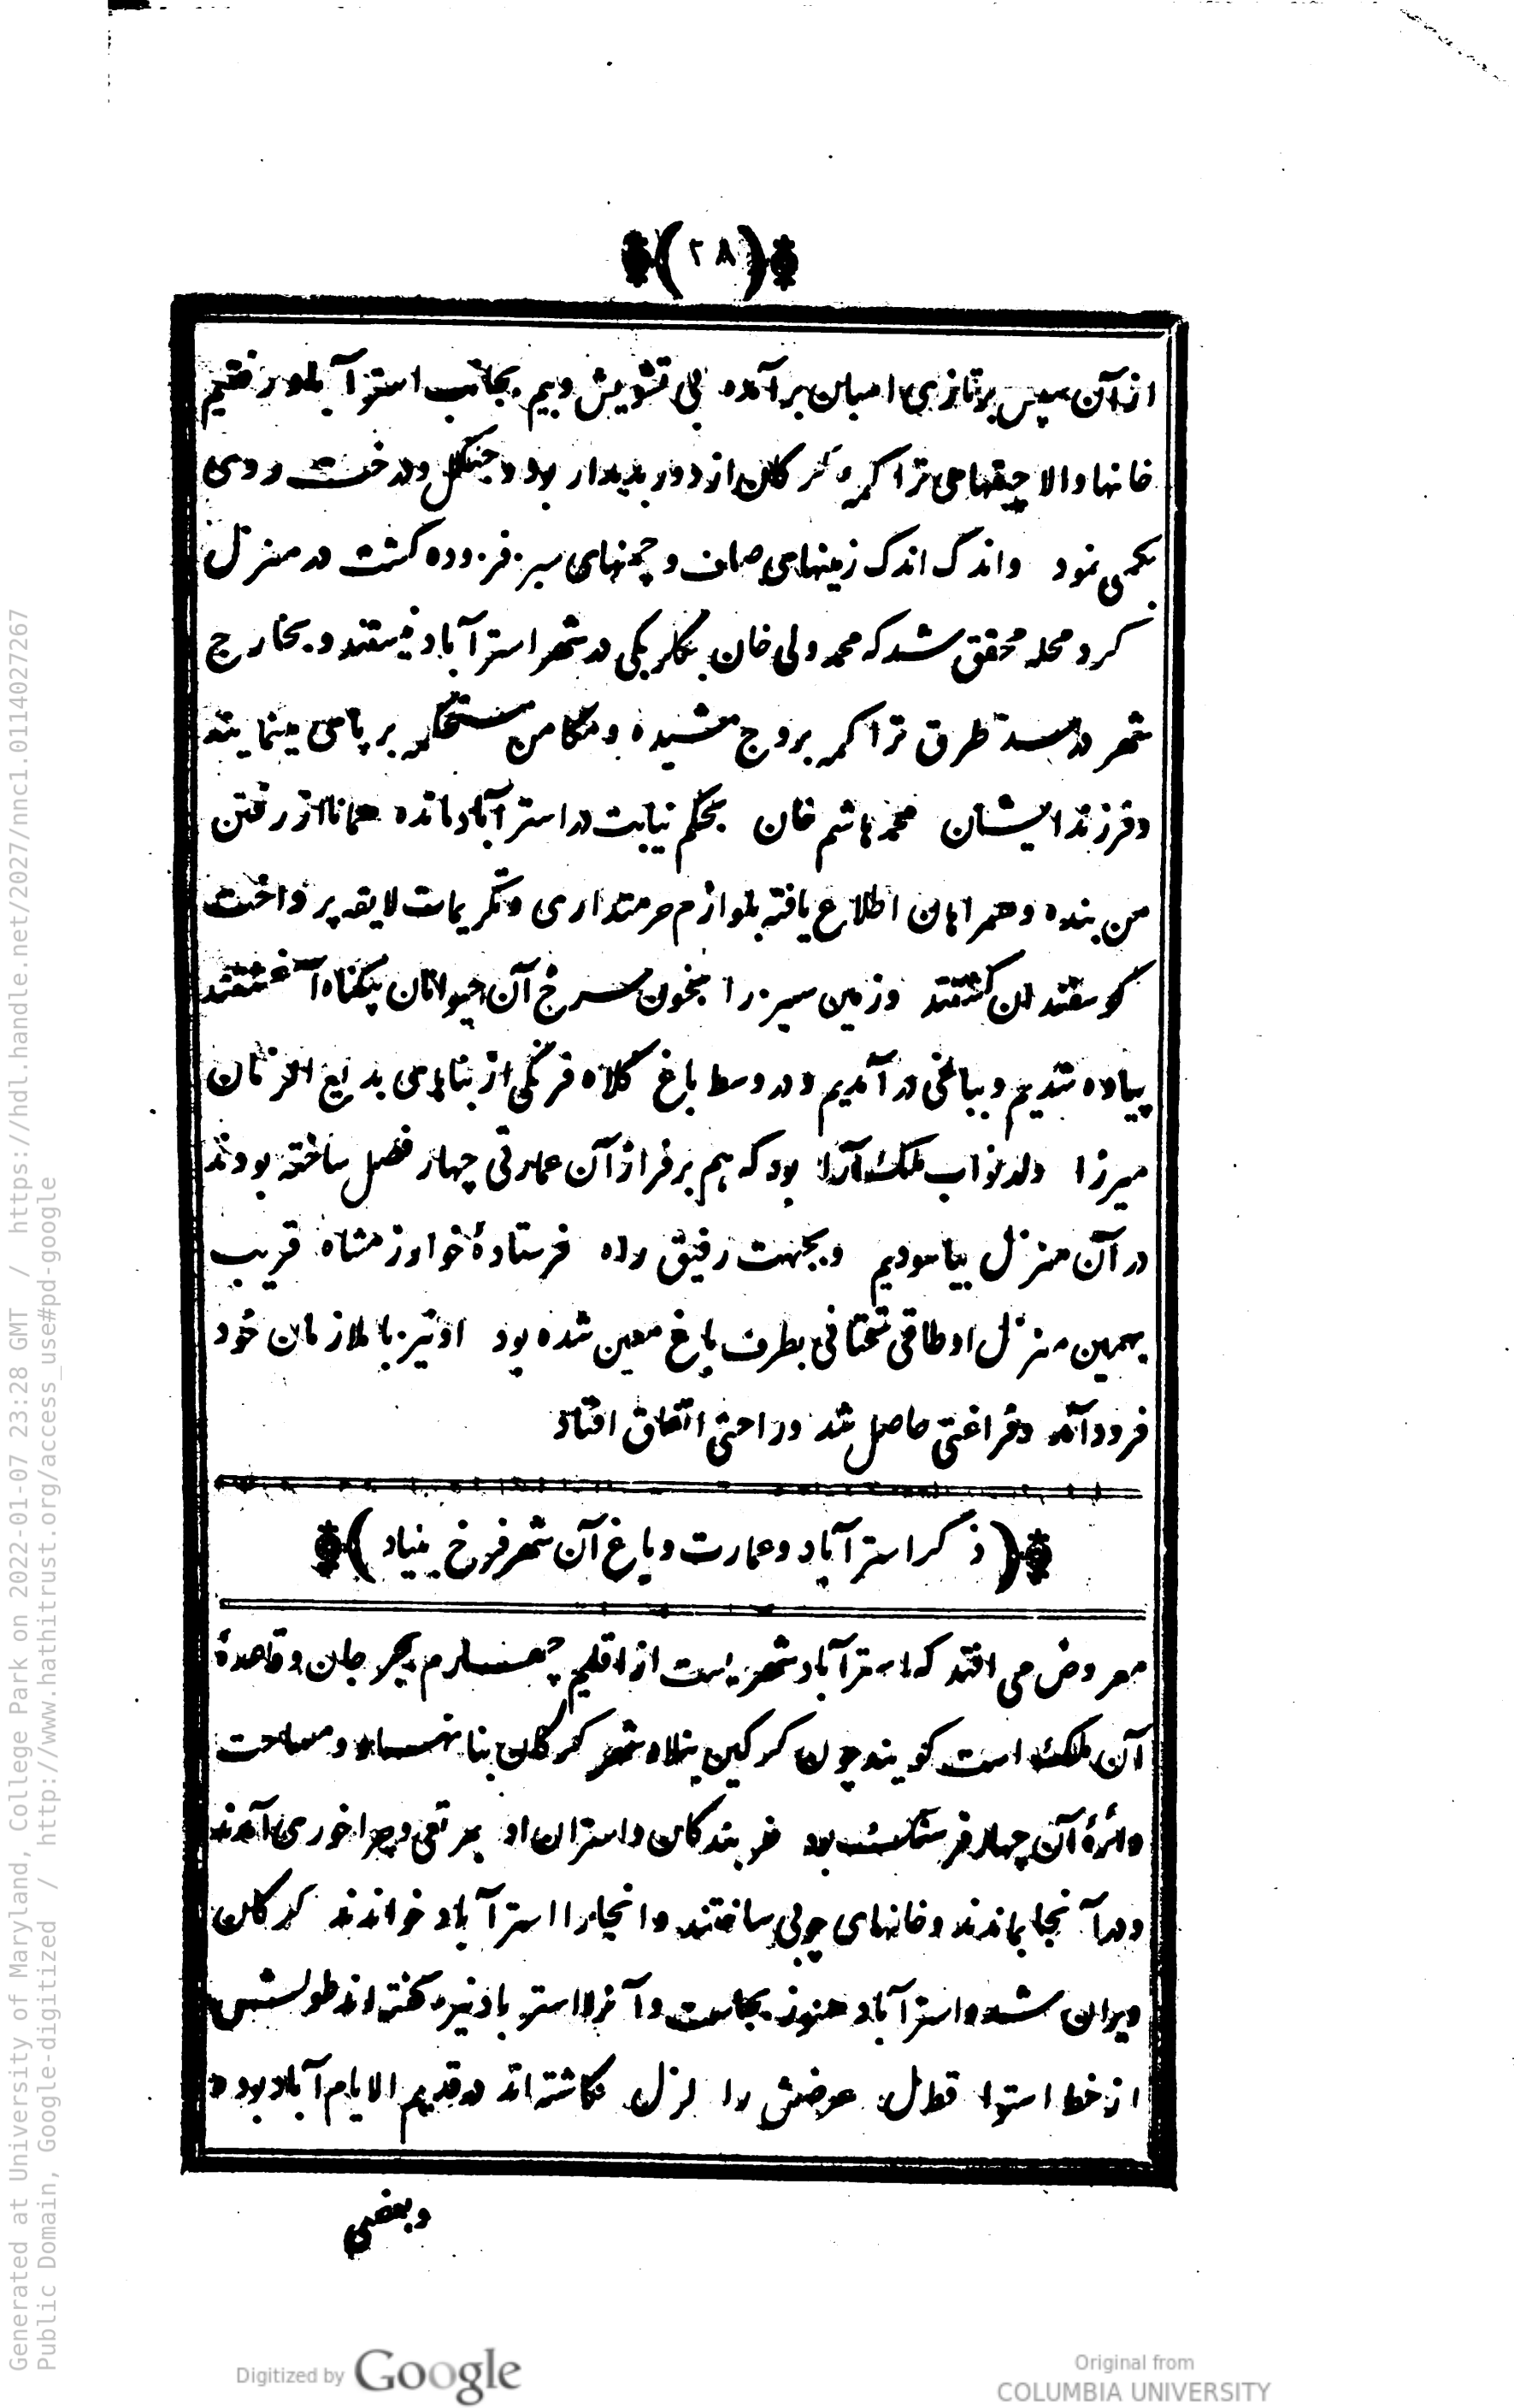 (۲۸)
از آن سپس برتازی اسبان برآمده بی تشویش و بیم بجانب استرآباد رفتیم
خانها و الاچیقهای تراکمه کرکان از دور پدیدار بود و جنکل و درخت روی
بکمی نمود واندک اندک زمینهای صاف و چمنهای سبز فزوده کشت در منزل
کرد محله محقق شد که محمد ولی خان بیکلربیکی در شهر استرآباد نیستند و بخارج
شهر در سد طرق تراکمه بروج مشیده و مکامن مستحکمه بر پای مینمایند
وفرزند ایشان محمد هاشم خان بحکم نیابت در استرآباد مانده همانا از رفتن
من بنده و همراهان اطلاع یافته بلوازم حرمتداری و تکریمات لایقه پرداخت
کوسفندان کشتند و زمین سبز را بخون سرخ آن حیوانان بیکناه آغشتند
پیاده شدیم و بباغی در آمدیم و در وسط باغ کلاه فرنکی از بناهای بدیع الزمان
میرزا ولد نواب ملک آرا بود که هم برفراز آن عمارتی چهار فصل ساخته بودند
در آن منزل بیاسودیم و بجهت رفیق راه فرستادهٔ خوارزمشاه قریب
بهمین منزل اوطاقی تحتانی بطرف باغ معین شده بود اونیز با ملازمان خود
فرود آمد و فراغتی حاصل شد و راحتی اتفاق افتاد
( ذکر استرآباد و عمارت و باغ آن شهر فرخ بنیاد )
معروض می افتد که استرآباد شهریست از اقلیم چهارم بجرجان و قاعدهٔ
آن ملک است کویند چون کرکین میلاد شهر کرکان بنا نهاد و مساحت
دائرهٔ آن چهار فرسنک بود خربندکان و استران او بمرتعی و چراخوری آمدند
و در آنجا بماندند و خانهای چوبی ساختند و انجارا استرآباد خواندند کرکان
ویران شد و استرآباد هنوز بجاست و آنرا استرباد نیز کفته اند طولش
از خط استوا قطل عرضش را لزل نکاشته اند در قدیم الایام آباد بود و
وبعضی
Generated at University of Maryland, College Park on 2022-01-07 23:28 GMT / https://hdl.handle.net/2027/nnc1.0114027267
Public Domain, Google-digitized / http://www.hathitrust.org/access_use#pd-google
Digitized by Google
Original from
COLUMBIA UNIVERSITY